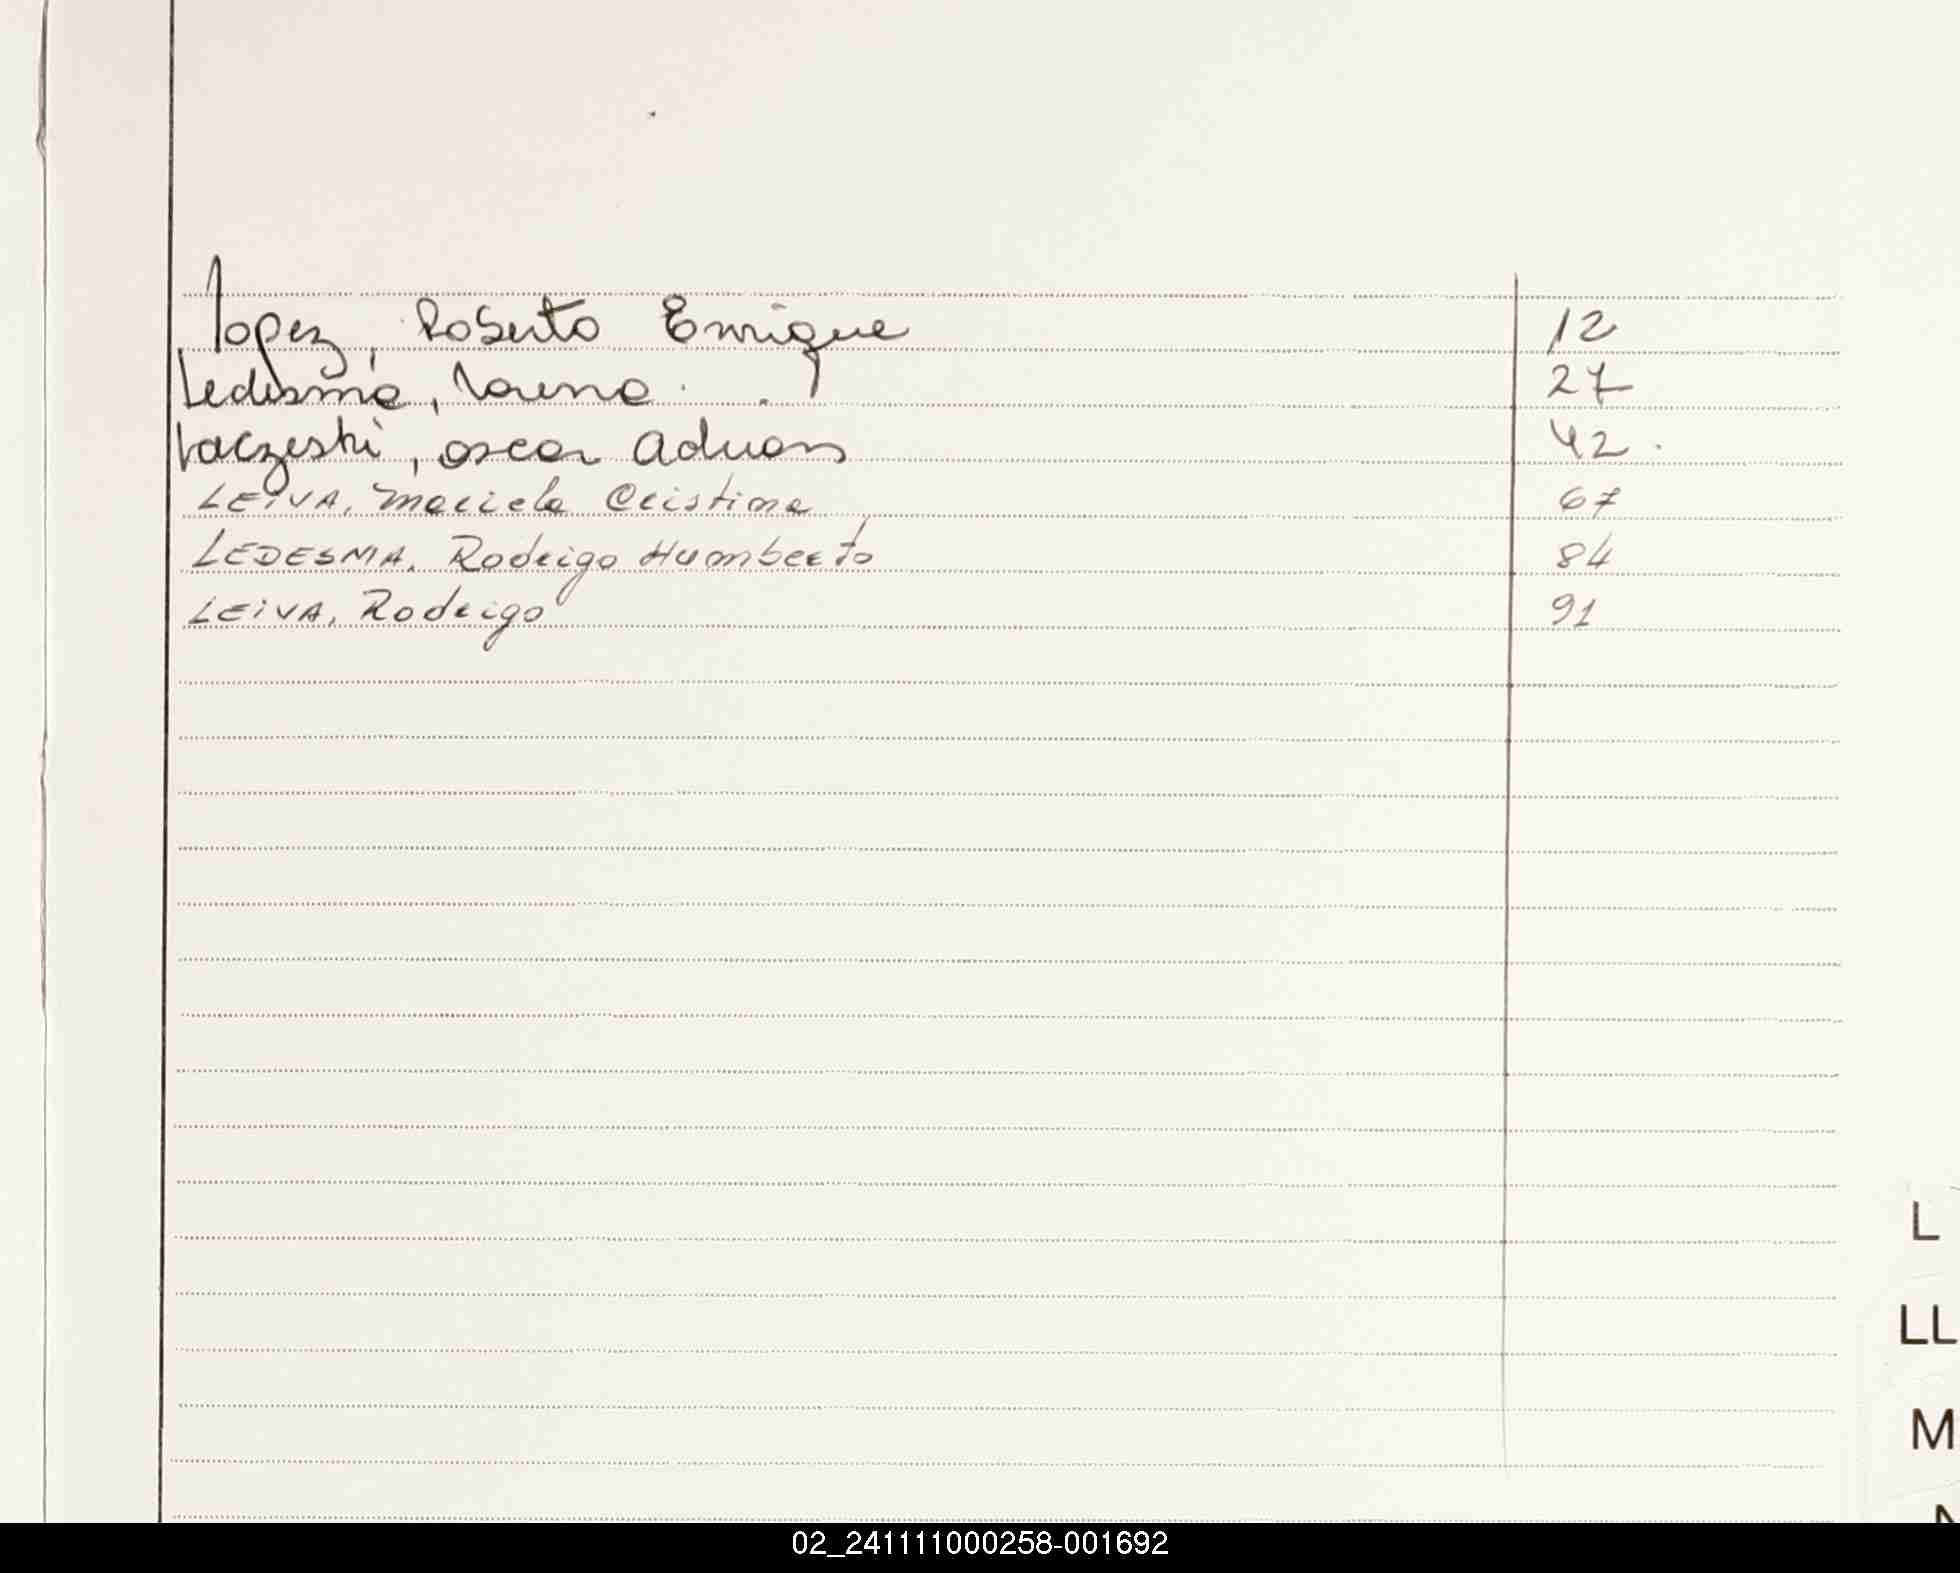 Lopez, Roberto Enrique 12
Ledesma, Lorena. 27
Laczeski, Oscar Adrian 42
LEIVA, Mariela Cristina 67
LEDESMA, Rodrigo Humberto 84
LEIVA, Rodrigo 91
L
LL
M
N
02_241111000258-001692